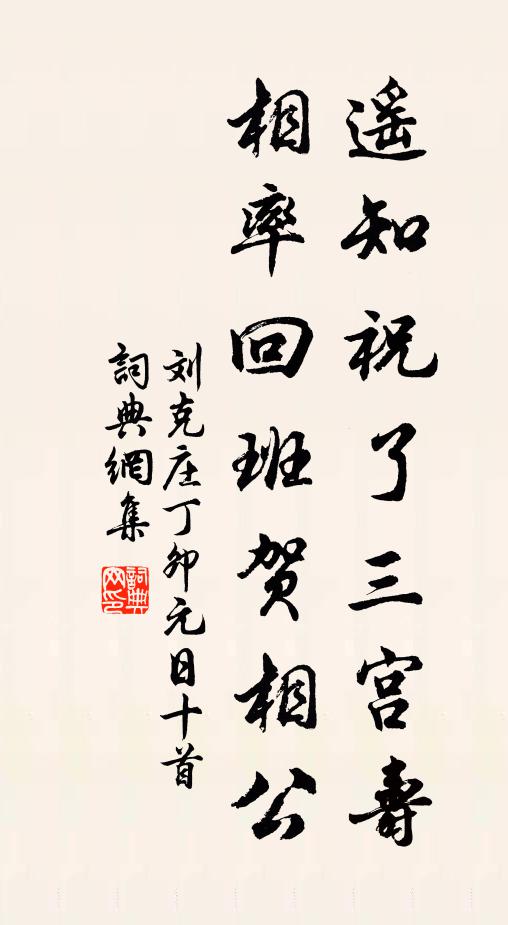 遥知祝了三宫壽
相率回班贺相公
刘克庄丁卯元日十首
詞典網集
詞典
网印